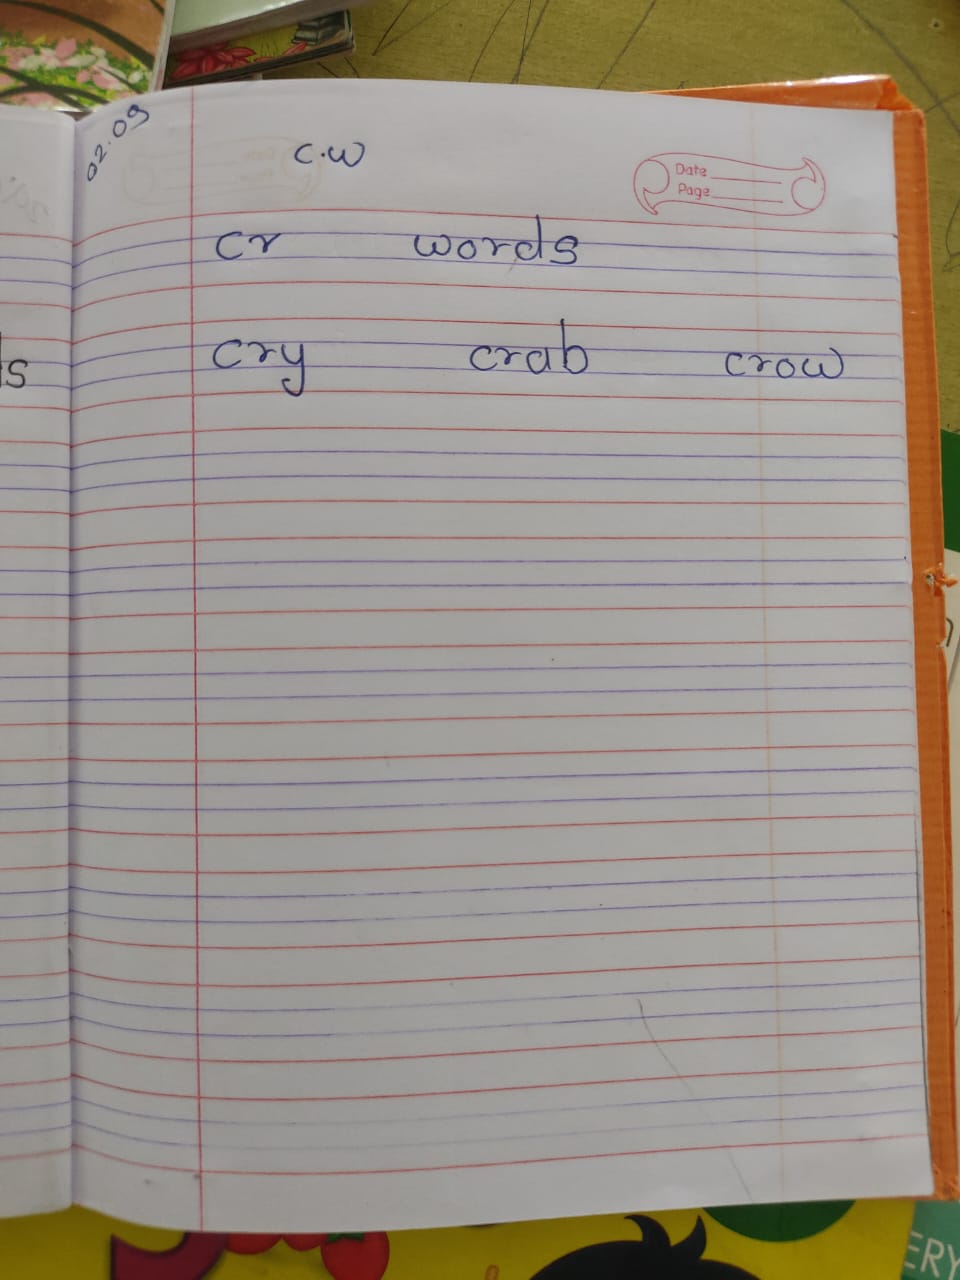 02.09
c.w
Date
Page
cr words
cry crab crow
ERY